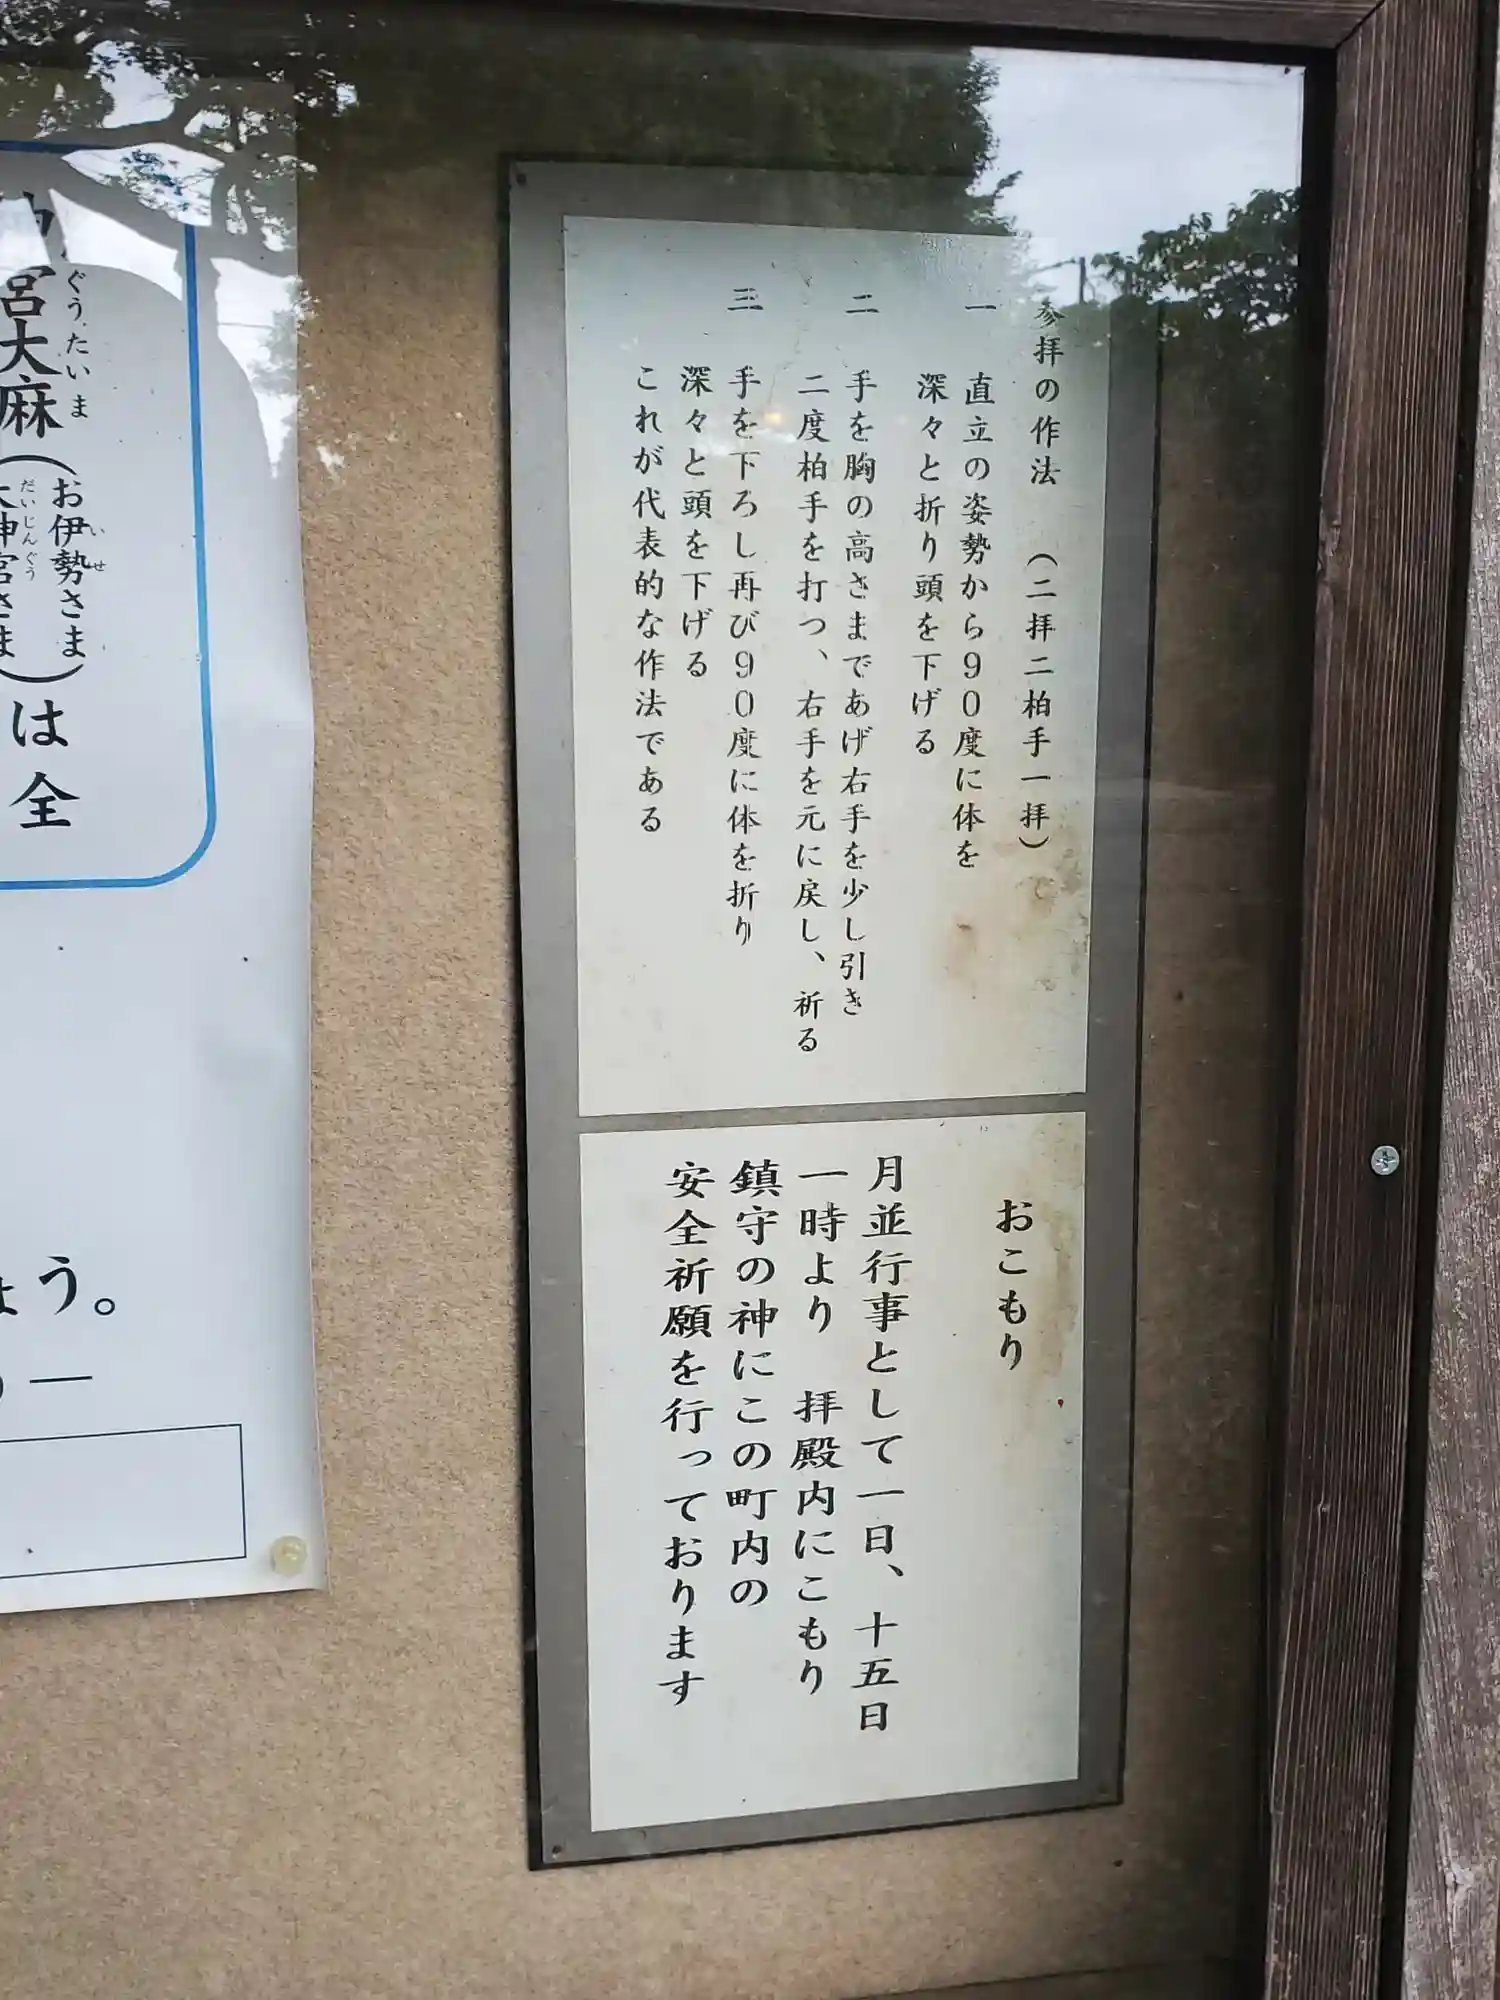 参拝の作法　（二拝二柏手一拝）
一　直立の姿勢から９０度に体を
深々と折り頭を下げる
二　手を胸の高さまであげ右手を少し引き
二度柏手を打つ、右手を元に戻し、祈る
三　手を下ろし再び９０度に体を折り
深々と頭を下げる
これが代表的な作法である
おこもり
月並行事として一日、十五日
一時より　拝殿内にこもり
鎮守の神にこの町内の
安全祈願を行っております
宮大麻（お伊勢さま
ぐうたいま
いせ
神宮さま）は全
だいじんぐう
う。